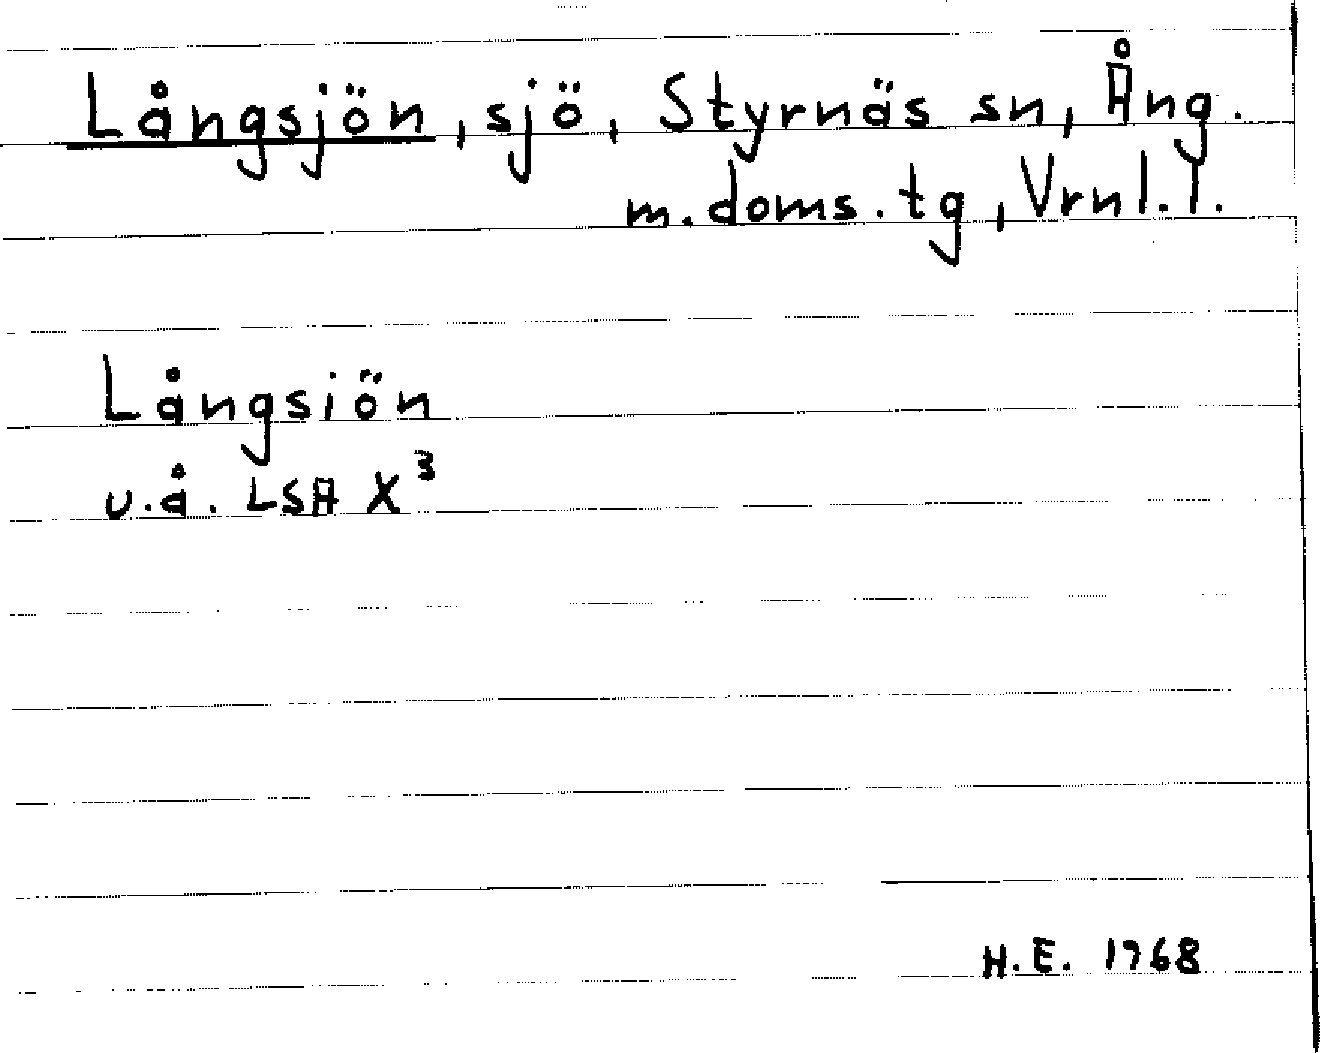 Långsjön, sjö, Styrnäs sn, Ång.
m. doms. tg, Vrnl. l.
Långsiön
u.å. LSA X³
H.E. 1968